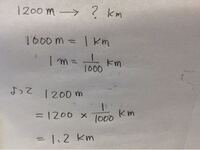 1200 m → ? km
1000 m = 1 km
1 m = 1/1000 km
よって 1200 m
= 1200 × 1/1000 km
= 1.2 km